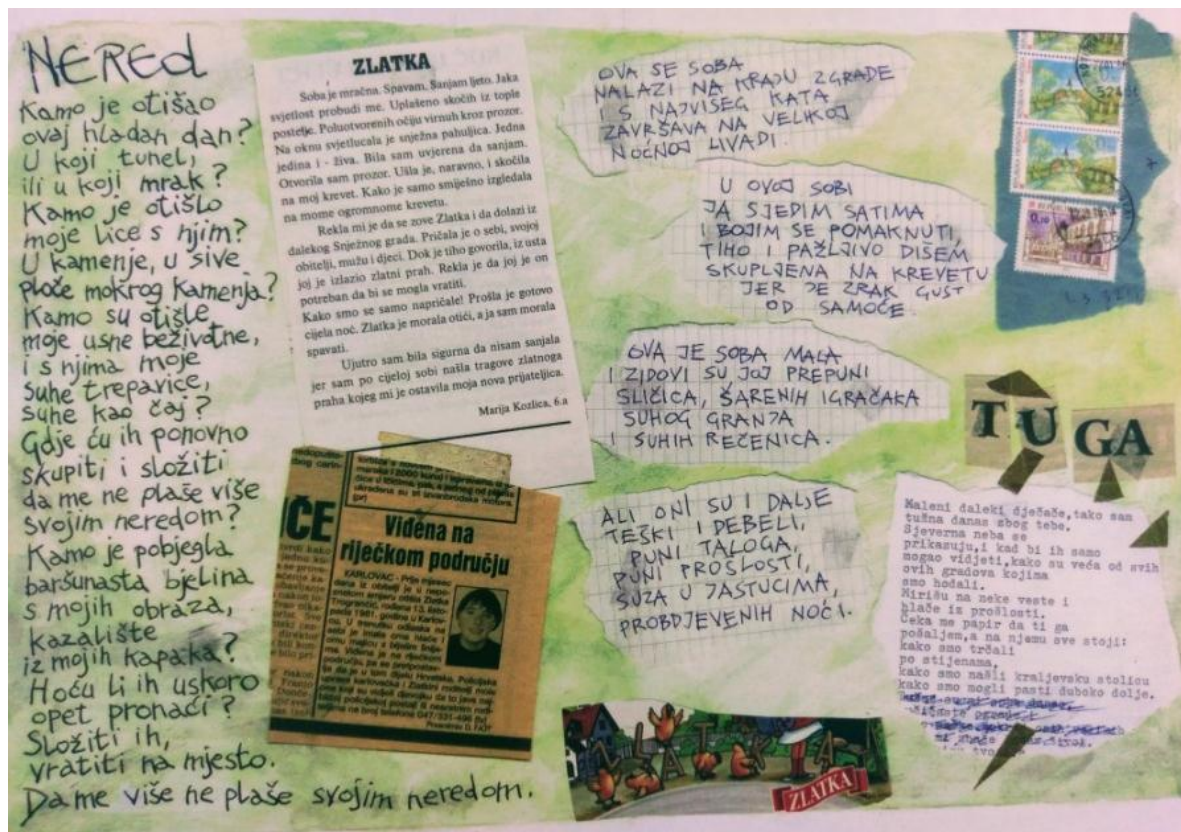 NERED
Kamo je otišao
ovaj hladan dan?
U koji tunel,
ili u koji mrak?
Kamo je otišlo
moje lice s njim?
U kamenje, u sive
ploče mokrog kamenja?
Kamo su otišle
moje usne beživotne,
i s njima moje
suhe trepavice,
suhe kao čaj?
Gdje ću ih ponovno
skupiti i složiti
da me ne plaše više
svojim neredom?
Kamo je pobjegla
baršunasta bjelina
s mojih obraza,
kazalište
iz mojih kapaka?
Hoću li ih uskoro
opet pronaći?
Složiti ih,
vratiti na mjesto.
Da me više ne plaše svojim neredom.
ZLATKA
Soba je mračna. Spavam. Sanjam ljeto. Jaka
svjetlost probudi me. Uplašeno skočih iz tople
postelje. Poluotvorenih očiju virnuh kroz prozor.
Na oknu svjetlucala je snježna pahuljica. Jedna
jedina i - živa. Bila sam uvjerena da sanjam.
Otvorila sam prozor. Ušla je, naravno, i skočila
na moj krevet. Kako je samo smiješno izgledala
na mome ogromnome krevetu.
Rekla mi je da se zove Zlatka i da dolazi iz
dalekog Snježnog grada. Pričala je o sebi, svojoj
obitelji, mužu i djeci. Dok je tiho govorila, iz usta
joj je izlazio zlatni prah. Rekla je da joj je on
potreban da bi se mogla vratiti.
Kako smo se samo napričale! Prošla je gotovo
cijela noć. Zlatka je morala otići, a ja sam morala
spavati.
Ujutro sam bila sigurna da nisam sanjala
jer sam po cijeloj sobi našla tragove zlatnoga
praha kojeg mi je ostavila moja nova prijateljica.
Marija Kozlica, 6.a
IČE
Viđena na
riječkom području
KARLOVAC - Prije mjesec
OVA SE SOBA
NALAZI NA KRAJU ZGRADE
I S NAJVIŠEG KATA
ZAVRŠAVA NA VELIKOJ
NOĆNOJ LIVADI.
U OVOJ SOBI
JA SJEDIM SATIMA
I BOJIM SE POMAKNUTI,
TIHO I PAŽLJIVO DIŠEM
SKUPLJENA NA KREVETU
JER JE ZRAK GUST
OD SAMOĆE.
OVA JE SOBA MALA
I ZIDOVI SU JOJ PREPUNI
SLIČICA, ŠARENIH IGRAČAKA
SUHOG GRANJA
I SUHIH REČENICA.
ALI ONI SU I DALJE
TEŠKI I DEBELI,
PUNI TALOGA,
PUNI PROŠLOSTI,
SUZA U JASTUCIMA,
PROBDJEVENIH NOĆI.
ZLATKA
ZLATKA
TUGA
Maleni daleki dječače,tako sam
tužna danas zbog tebe.
Sjeverna neba se
prikazuju,i kad bi ih samo
mogao vidjeti,kako su veća od svih
ovih gradova kojima
smo hodali.
Mirišu na neke veste i
hlače iz prošlosti.
Čeka me papir da ti ga
pošaljem,a na njemu sve stoji:
kako smo trčali
po stijenama,
kako smo našli kraljevsku stolicu
kako smo mogli pasti duboko dolje.